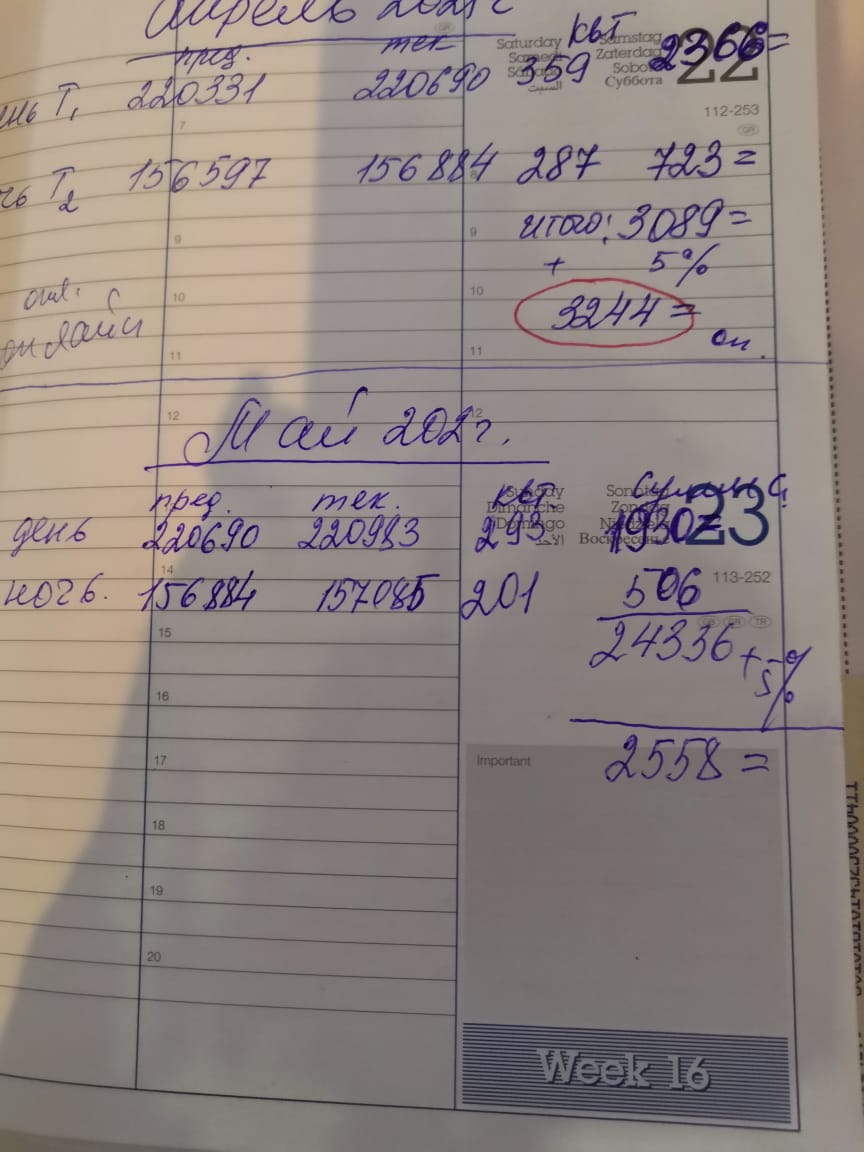 Апрель 2021г
пред. тек квт
Saturday Samstag 22
Samedi Zaterdag
Sobota
Суббота
السبت
ень T1 220331 220690 359 2366=
112-253
GR
7
чь T2 156597 156884 287 723=
8
9 9 итого: 3089=
+ 5%
опл.
онлайн
10 10 3244=
оп.
11 11
12 12
Май 202 г.
пред. тек. квт. Сумма
Sunday Sonntag 23
Dimanche Zondag
Domingo Niedziela
الأحد Воскресенье
день 220690 220983 293 1930=
14
113-252
ночь. 156884 157085 201 506
GB GR TR
15 24336 + 5%
16
17 Important 2558=
18
19
20
Week 16